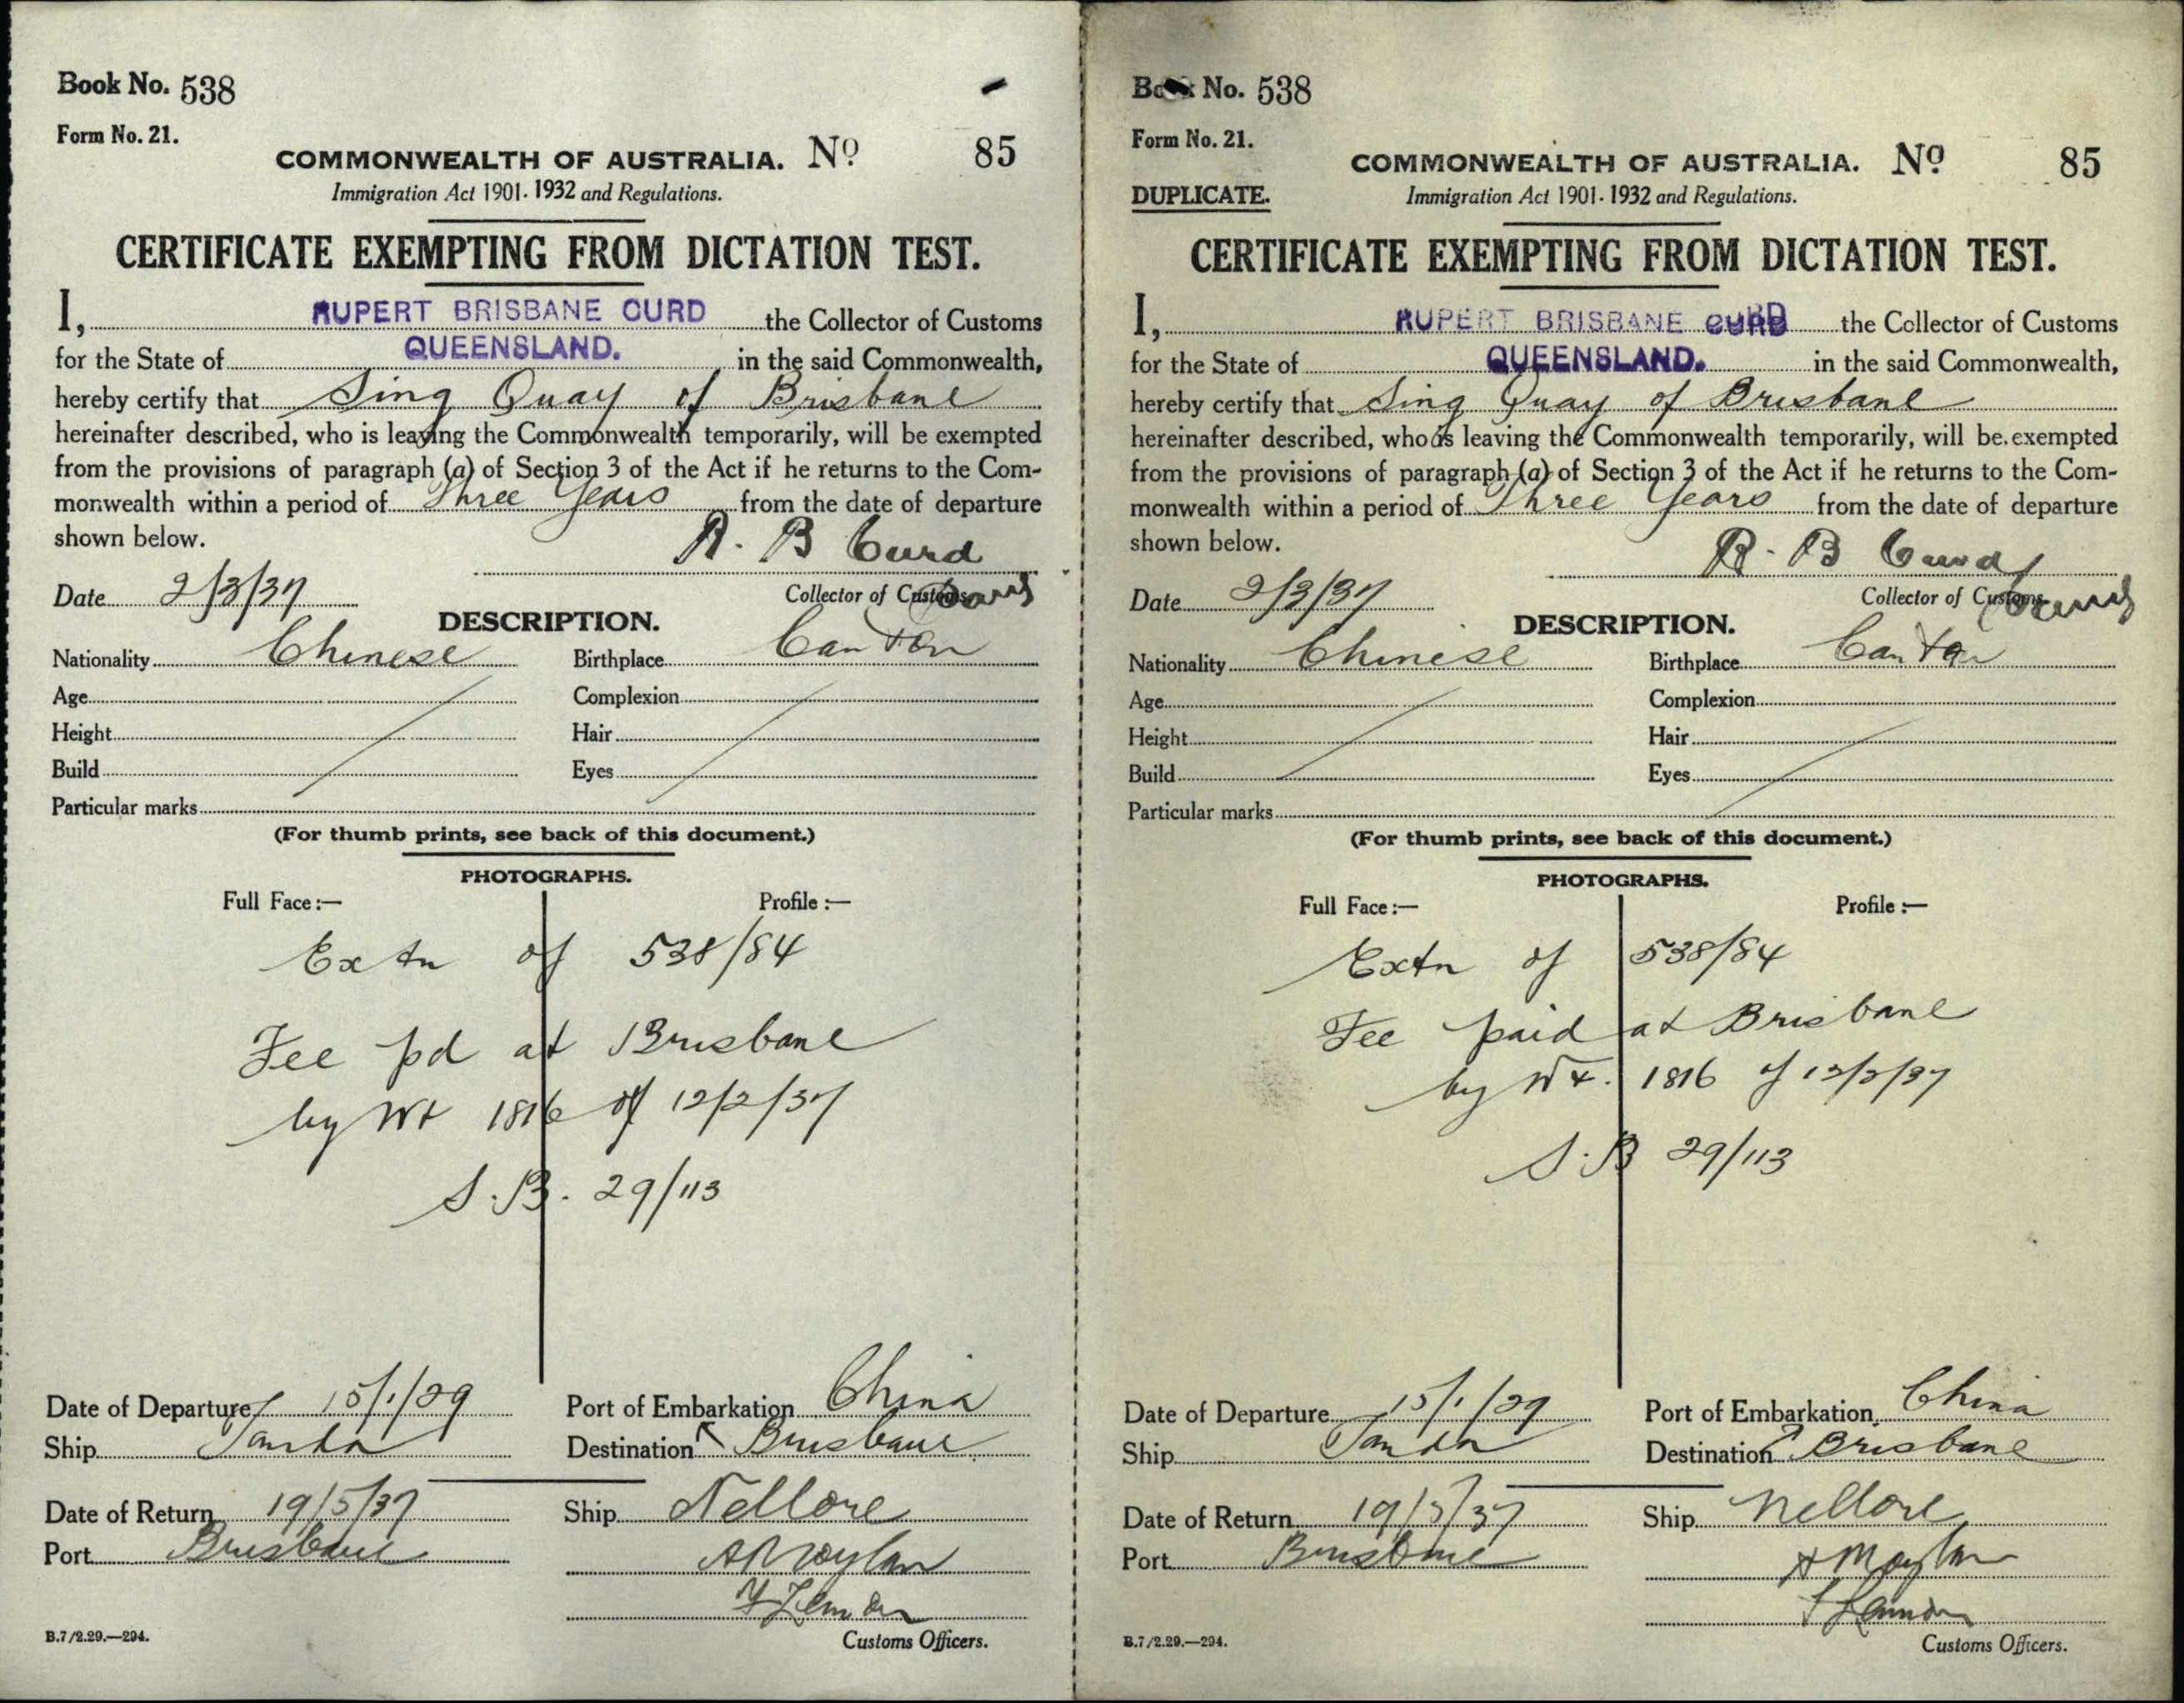 Book No. 538
Form No. 21.
COMMONWEALTH OF AUSTRALIA. Nº 85
Immigration Act 1901-1932 and Regulations.
CERTIFICATE EXEMPTING FROM DICTATION TEST.
I, RUPERT BRISBANE CURD the Collector of Customs
for the State of QUEENSLAND. in the said Commonwealth,
hereby certify that Sing Quay of Brisbane
hereinafter described, who is leaving the Commonwealth temporarily, will be exempted
from the provisions of paragraph (a) of Section 3 of the Act if he returns to the Com-
monwealth within a period of Three Years from the date of departure
shown below.
R. B Curd
Date 2/3/37 Collector of Customs
DESCRIPTION.
Nationality Chinese Birthplace Canton
Age Complexion
Height Hair
Build Eyes
Particular marks
(For thumb prints, see back of this document.)
PHOTOGRAPHS.
Full Face:— Profile:—
Extn of 538/84
Fee pd at Brisbane
by Wt 1816 of 12/2/37
S.B. 29/113
Date of Departure 15/1/29 Port of Embarkation China
Ship Tanda Destination Brisbane
Date of Return 19/5/37 Ship Nellore
Port Brisbane
Customs Officers.
B.7/2.29.—294.
Book No. 538
Form No. 21.
DUPLICATE.
COMMONWEALTH OF AUSTRALIA. Nº 85
Immigration Act 1901-1932 and Regulations.
CERTIFICATE EXEMPTING FROM DICTATION TEST.
I, RUPERT BRISBANE CURD the Collector of Customs
for the State of QUEENSLAND. in the said Commonwealth,
hereby certify that Sing Quay of Brisbane
hereinafter described, who is leaving the Commonwealth temporarily, will be exempted
from the provisions of paragraph (a) of Section 3 of the Act if he returns to the Com-
monwealth within a period of Three Years from the date of departure
shown below.
R. B Curd
Date 2/3/37 Collector of Customs
DESCRIPTION.
Nationality Chinese Birthplace Canton
Age Complexion
Height Hair
Build Eyes
Particular marks
(For thumb prints, see back of this document.)
PHOTOGRAPHS.
Full Face:— Profile:—
Extn of 538/84
Fee paid at Brisbane
by Wt. 1816 of 12/2/37
S.B 29/113
Date of Departure 15/1/29 Port of Embarkation China
Ship Tanda Destination Brisbane
Date of Return 19/5/37 Ship Nellore
Port Brisbane
Customs Officers.
B.7/2.29.—294.